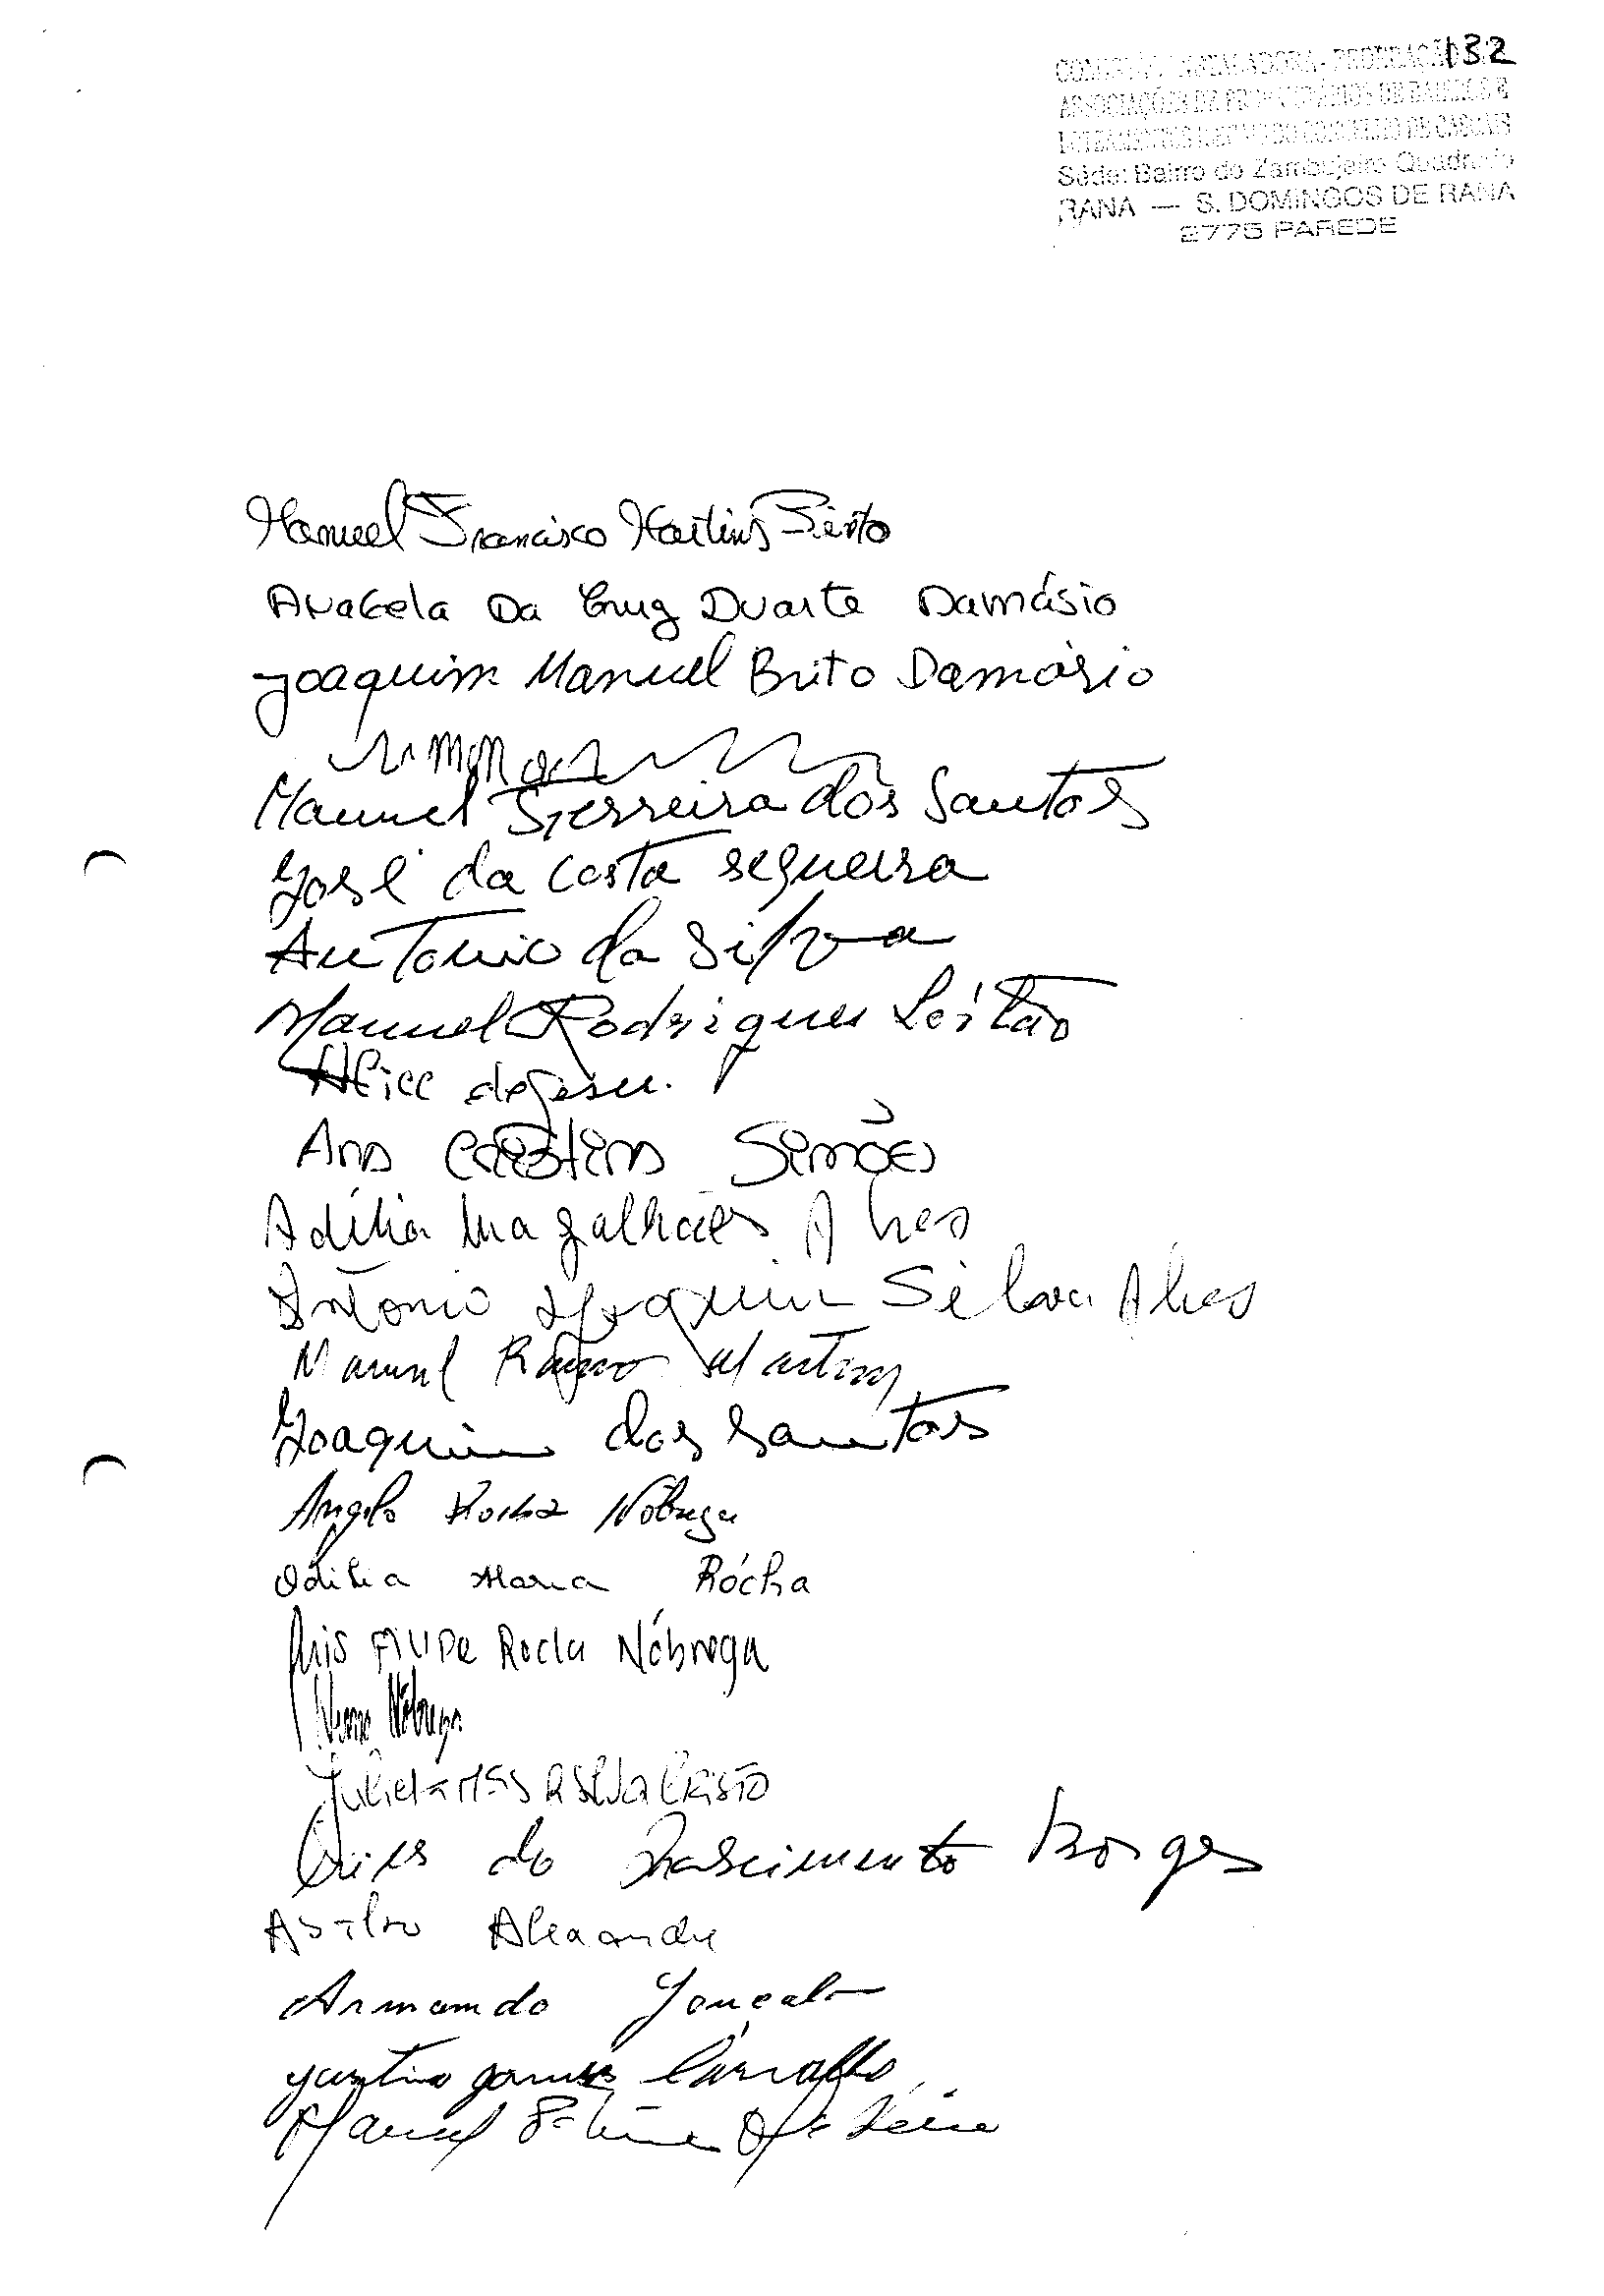 132
ASSOCIAÇÕES DE PROPRIETÁRIOS DE BAIRROS E
DO CONCELHO DE CASCAIS
Séde: Bairro do Zambujeiro Quadrado
RANA — S. DOMINGOS DE RANA
2775 PAREDE
Manuel Francisco Martins Pinto
Anabela Da Cruz Duarte Damásio
Joaquim Manuel Brito Damásio
Manuel Ferreira dos Santos
José da Costa sequeira
Antonio da Silva
Manuel Rodrigues Leitão
Alice de Jesus.
Ana Cristina Simões
Adília Magalhães Alves
António Joaquim Silva Alves
Manuel Ramo Martins
Joaquim dos Santos
Angelo Rocha Nóbrega
Odilia Maria Rócha
Luis Filipe Rocha Nóbrega
Nuno Nóbrega
Julieta Silva Cristo
do Nascimento Borges
Alexandre
Armando Gonçalo
Justino gomes Carvalho
Manuel